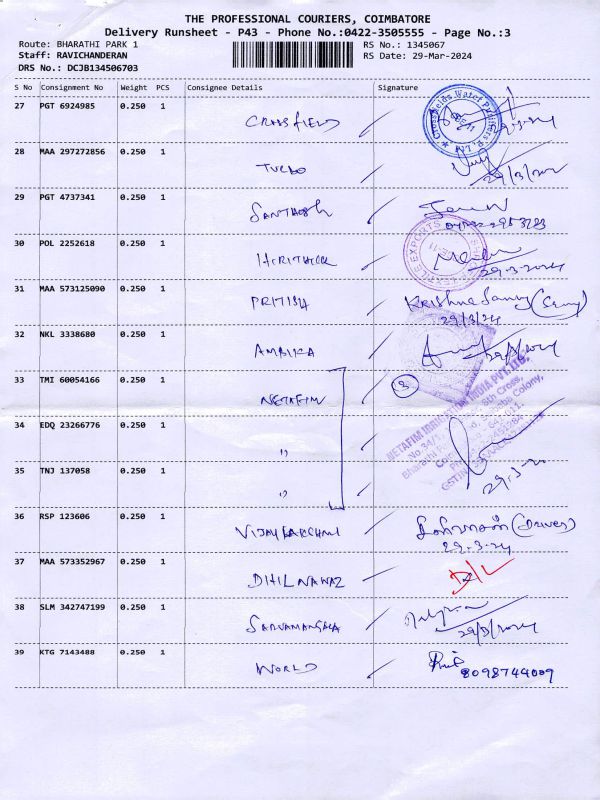 THE PROFESSIONAL COURIERS, COIMBATORE
Delivery Runsheet - P43 - Phone No.:0422-3505555 - Page No.:3
Route: BHARATHI PARK 1
RS No.: 1345067
Staff: RAVICHANDERAN
RS Date: 29-Mar-2024
DRS No.: DCJB134506703
S No Consignment No Weight PCS Consignee Details Signature
27 PGT 6924985 0.250 1 CROSSFIELD
28 MAA 297272856 0.250 1 TURBO 29/3/2024
29 PGT 4737341 0.250 1 SANTHOSH
30 POL 2252618 0.250 1 29-3-2024
31 MAA 573125090 0.250 1 PRITISH Krishna Samy (Samy)
29/3/24
32 NKL 3338680 0.250 1 AMBIKA
33 TMI 60054166 0.250 1 NETAFIM 3
NETAFIM IRRIGATION INDIA PVT. LTD.
34 EDQ 23266776 0.250 1 "
35 TNJ 137058 0.250 1 " 29.3.20
36 RSP 123606 0.250 1 VIJAYLAKSHMI (Driver)
29.3.24
37 MAA 573352967 0.250 1 DHILNAWAZ D/L
38 SLM 342747199 0.250 1 SARVAMANGALA 29/3/2024
39 KTG 7143488 0.250 1 WORLD
8098744009